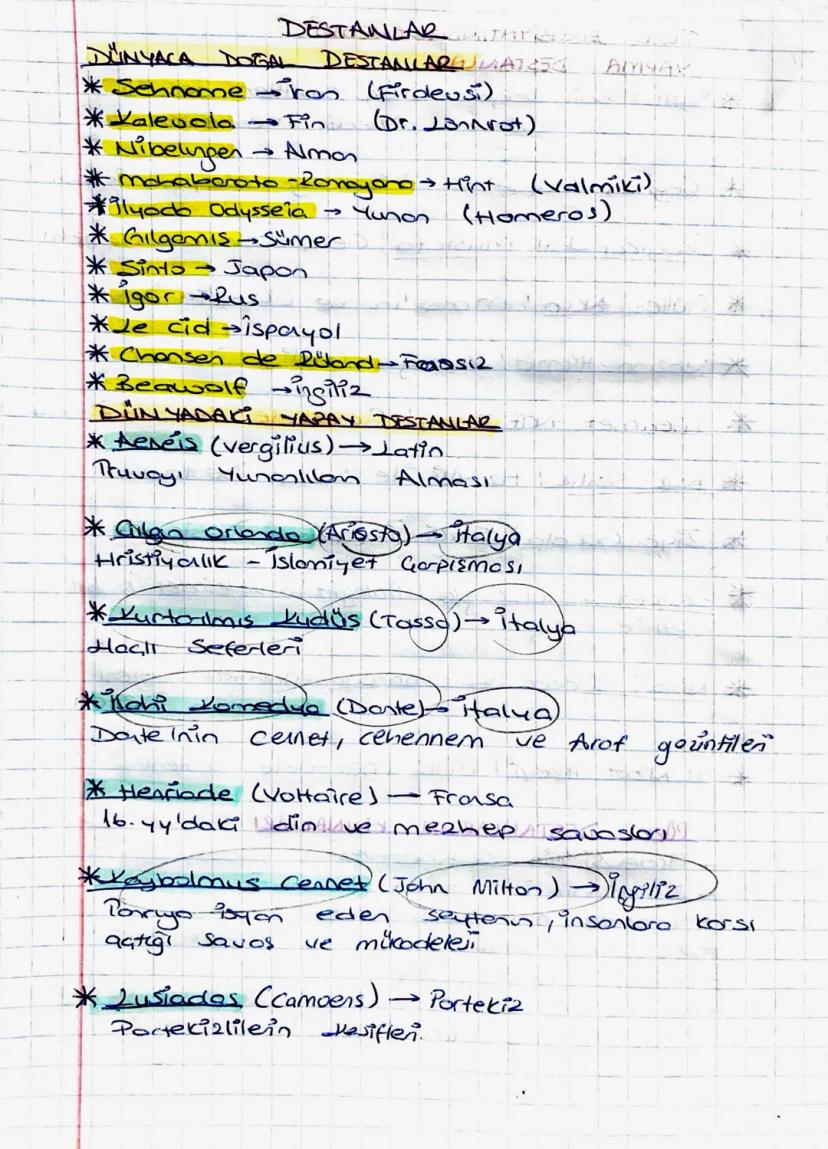 DESTANLAR
DÜNYACA DOĞAL DESTANLAR
* Şehname → İran (Firdevsi)
* Kalevala → Fin (Dr. Lönnrot)
* Nibelungen → Alman
* Mahabarata - Ramayana → Hint (Valmiki)
* İlyada Odysseia → Yunan (Homeros)
* Gılgamış → Sümer
* Şinto → Japon
* İgor → Rus
* Le cid → İspanyol
* Chansen de Roland → Fransız
* Beawolf → İngiliz
DÜNYADAKİ YAPAY DESTANLAR
* Aeneis (Vergilius) → Latin
Truvayı Yunanlıların Alması
* Çılgın Orlando (Ariosto) → İtalya
Hristiyanlık - İslamiyet Çarpışması
* Kurtarılmış Kudüs (Tasso) → İtalya
Haçlı Seferleri
* İlahi Komedya (Dante) → İtalya
Dante'nin cennet, cehennem ve Araf gezintileri
* Henriade (Voltaire) → Fransa
16. yy'daki din ve mezhep savaşları
* Kaybolmuş Cennet (John Milton) → İngiliz
Tanrıya isyan eden şeytanın, insanlara karşı
açtığı savaş ve mücadelesi
* Lusiadas (Camoens) → Portekiz
Portekizlilerin keşifleri.